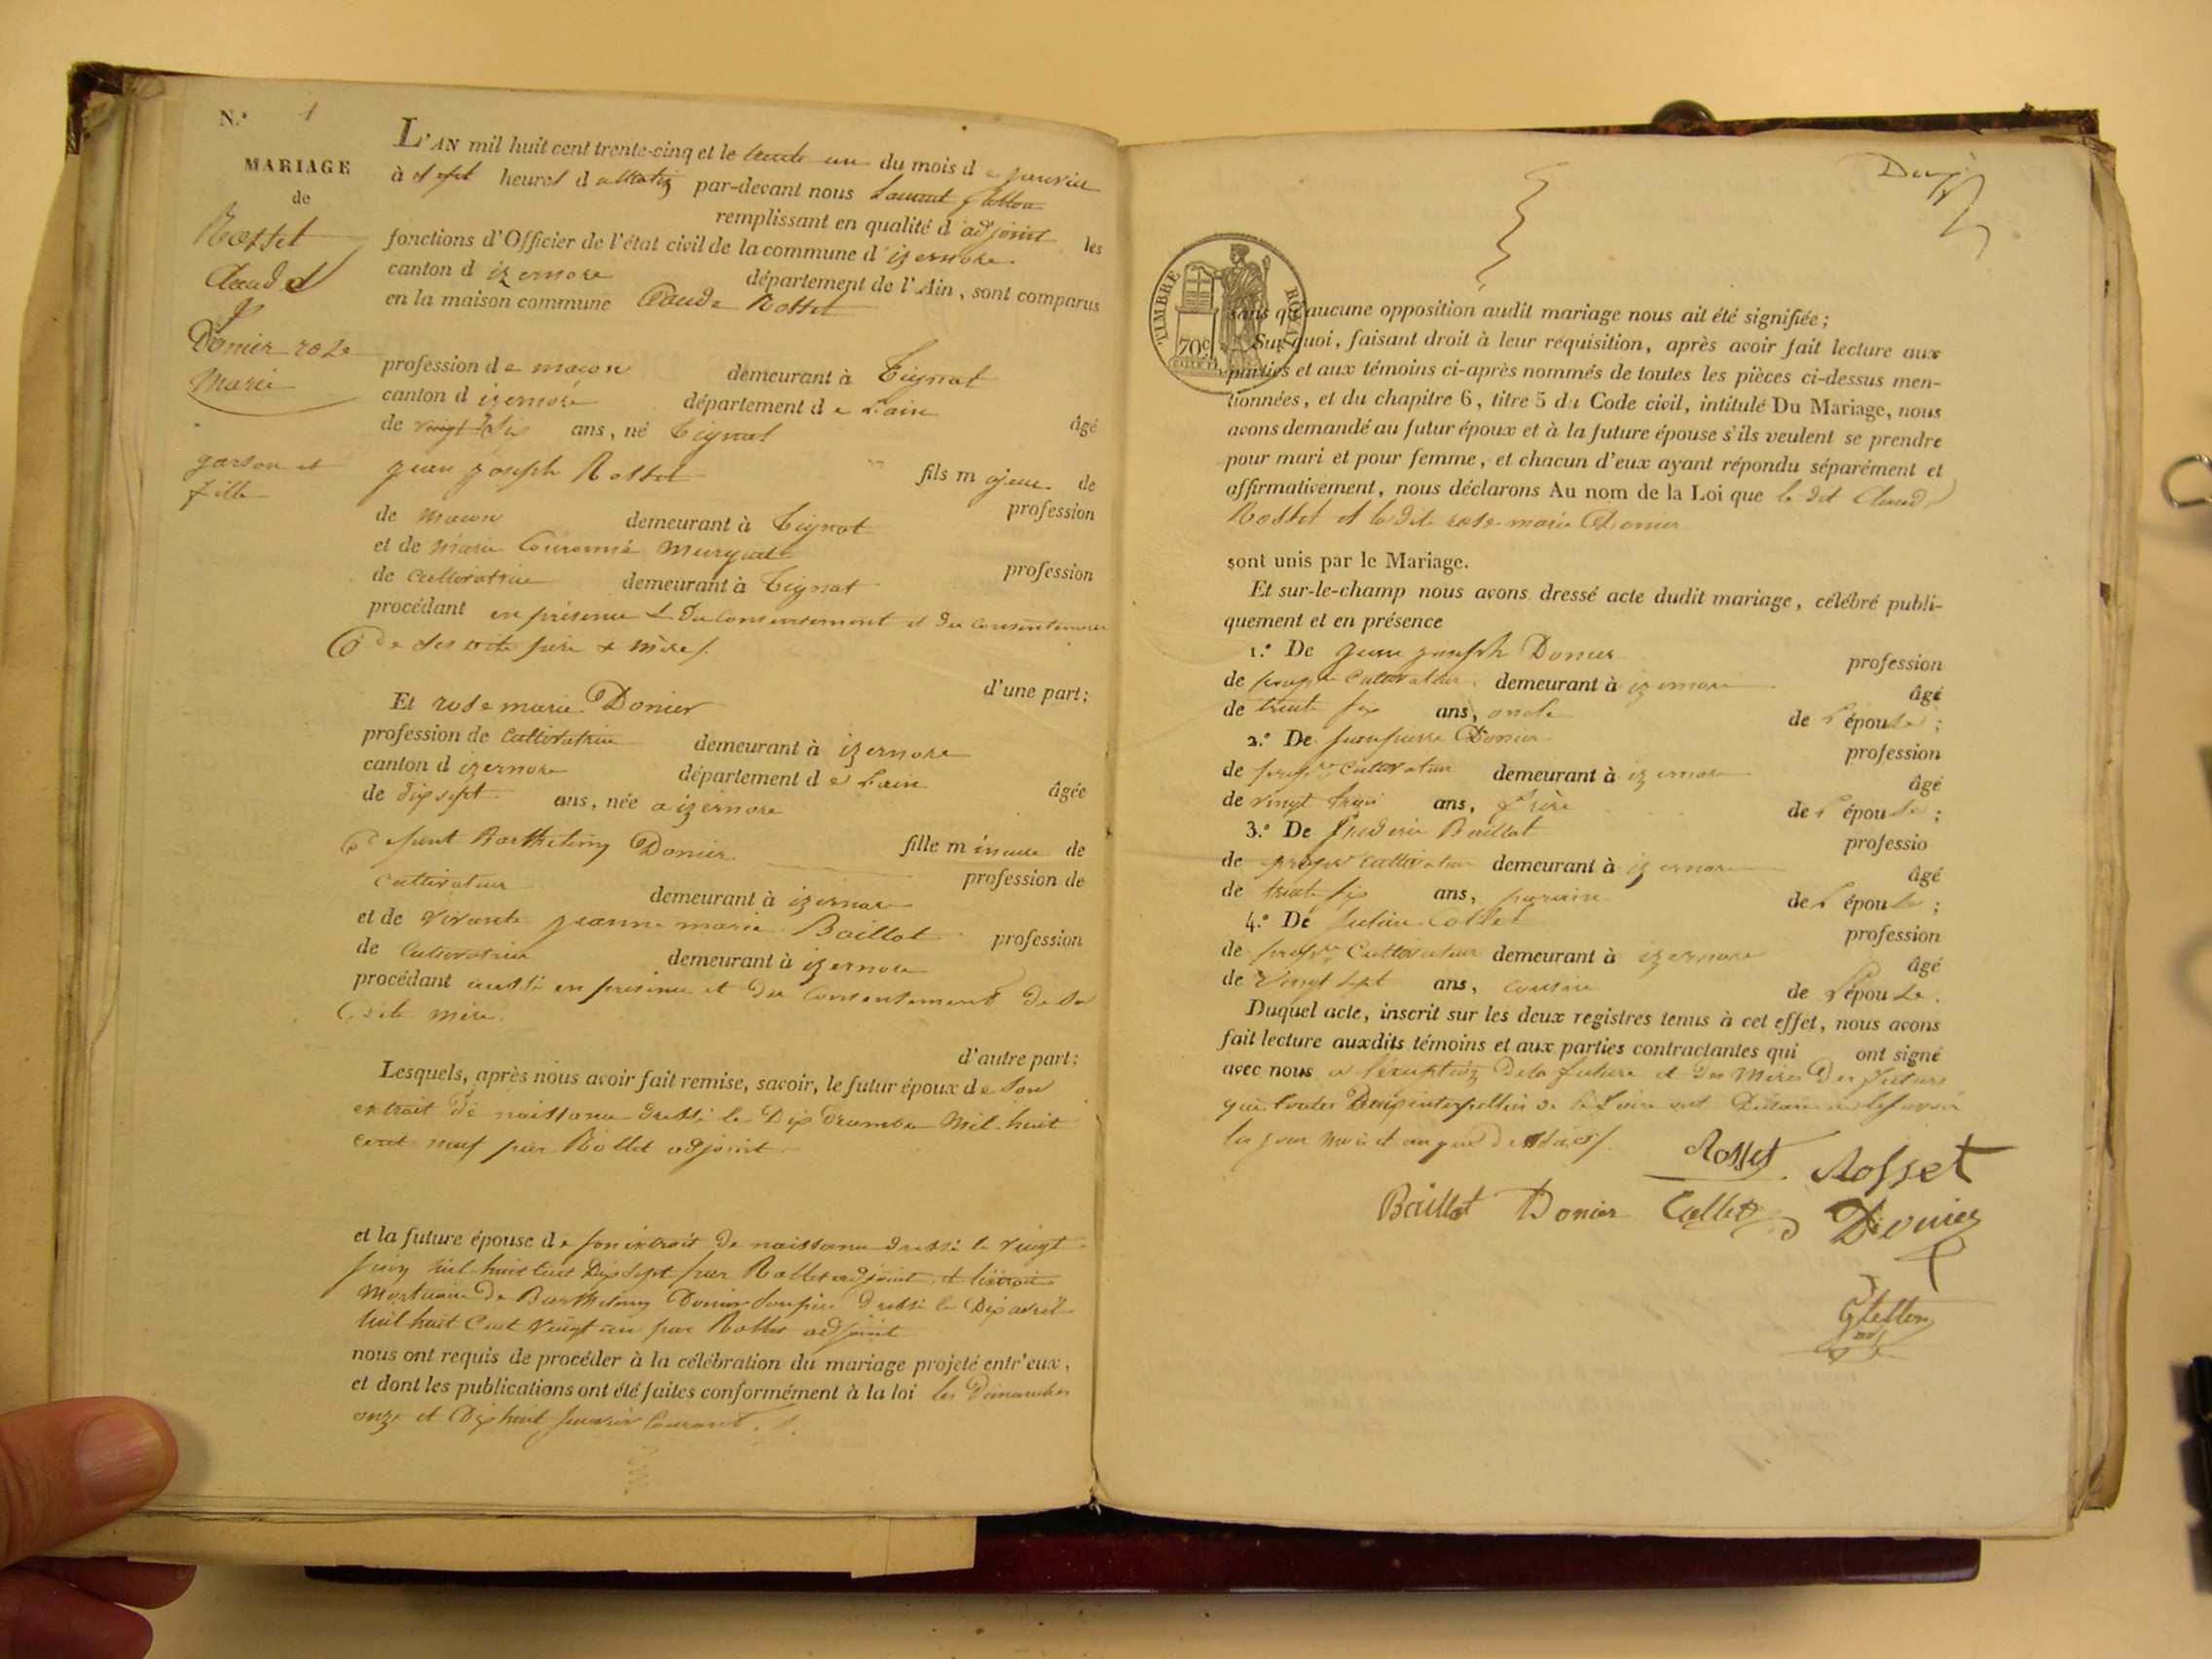 N.º 1
MARIAGE
de
Rosset
Claude
&
Donier rose
Marie
garson et
fille
L'AN mil huit cent trente-cinq et le trente un du mois de janvier
à sept heures du matin par-devant nous Laurent
remplissant en qualité d'adjoint les
fonctions d'Officier de l'état civil de la commune d'izernore
canton d izernore département de l'Ain, sont comparus
en la maison commune Claude Rosset
profession de macon demeurant à Tignat
canton d izernore département de Lain âgé
de vingt ans, né Tignat
jean joseph Rosset fils majeur de
profession
de macon demeurant à Tignat
et de marie
profession
de cultivatrice demeurant à Tignat
procédant en présence & du consentement et du consentement
de ses dits père & mère
d'une part;
Et rose marie Donier
profession de cultivatrice demeurant à izernore
canton d izernore département de Lain âgée
de dix sept ans, née a izernore
defunt Barthelemy Donier fille mineure de
profession de
cultivateur demeurant à izernore
et de vivante jeanne marie Baillat profession
de cultivatrice demeurant à izernore
procédant aussi en présence et du consentement de sa
dite mère.
d'autre part;
Lesquels, après nous avoir fait remise, savoir, le futur époux de son
extrait de naissance dressé le Dix mil huit
cent neuf par Rollet adjoint
et la future épouse de son extrait de naissance dressé le vingt
juin mil huit cent dix sept par Rollet adjoint et l'extrait
mortuaire de Barthelemy Donier son père dressé le Dix avril
mil huit cent vingt un par Rollet adjoint
nous ont requis de procéder à la célébration du mariage projeté entr'eux,
et dont les publications ont été faites conformément à la loi les Dimanches
onze et Dix huit janvier courant.
TIMBRE ROYAL
70 c
sans qu'aucune opposition audit mariage nous ait été signifiée;
Sur quoi, faisant droit à leur réquisition, après avoir fait lecture aux
parties et aux témoins ci-après nommés de toutes les pièces ci-dessus men-
tionnées, et du chapitre 6, titre 5 du Code civil, intitulé Du Mariage, nous
avons demandé au futur époux et à la future épouse s'ils veulent se prendre
pour mari et pour femme, et chacun d'eux ayant répondu séparément et
affirmativement, nous déclarons Au nom de la Loi que le dit Claude
Rosset et la dite rose marie Donier
sont unis par le Mariage.
Et sur-le-champ nous avons dressé acte dudit mariage, célébré publi-
quement et en présence
1.º De jean joseph Donier profession
de cultivateur demeurant à izernore âgé
de trente six ans, oncle de l'épouse;
2.º De jean pierre Donier profession
de cultivateur demeurant à izernore âgé
de vingt trois ans, frère de l'épouse;
3.º De frederic Baillat professio
de cultivateur demeurant à izernore âgé
de trente six ans, de l'épouse;
4.º De Collet profession
de cultivateur demeurant à izernore âgé
de vingt sept ans, cousin de l'épouse.
Duquel acte, inscrit sur les deux registres tenus à cet effet, nous avons
fait lecture auxdits témoins et aux parties contractantes qui ont signé
avec nous a l'exception de la future et des mères des futurs
les jour mois et an que dessus
Rosset Rosset
Baillat Donier Collet Donier